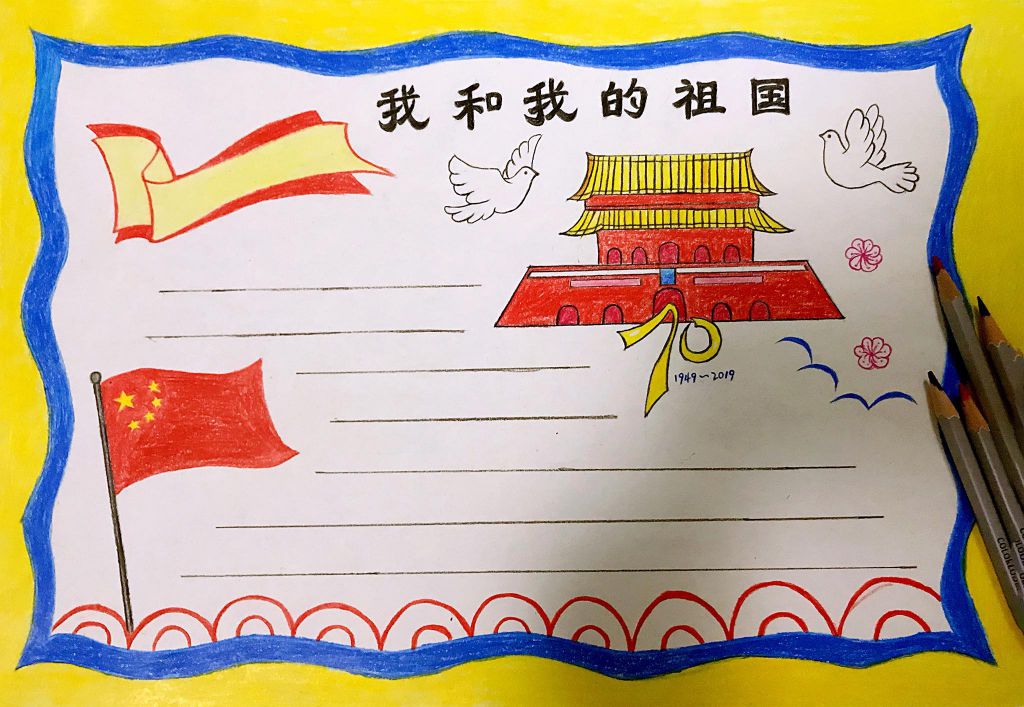 我和我的祖国
70
1949~2019